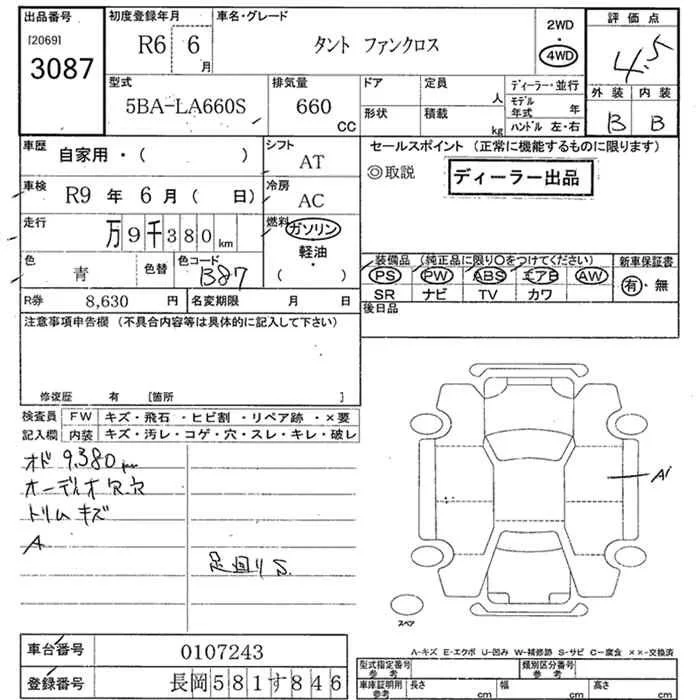 出品番号
[2069]
3087
初度登録年月
R6 6
月
車名・グレード
タント ファンクロス
2WD
4WD
評価点
4.5
外装 内装
B B
型式
5BA-LA660S
排気量
660
CC
ドア
形状
定員
人
積載
kg
ディーラー・並行
モデル年式 年
ハンドル 左・右
車歴
自家用・( )
シフト
AT
車検
R9 年 6 月 ( 日)
冷房
AC
走行
万9千380km
燃料
ガソリン
軽油・
( )
色
青
色替
色コード
B87
R券
8,630 円
名変期限
月 日
セールスポイント (正常に機能するものに限ります)
◎取説
ディーラー出品
装備品 (純正品に限り○をつけてください)
PS PW ABS エアB AW
SR ナビ TV カワ
新車保証書
有・無
後日品
注意事項申告欄 (不具合内容等は具体的に記入して下さい)
修復歴 有 [箇所 ]
検査員記入欄
FW キズ・飛石・ヒビ割・リペア跡・×要
内装 キズ・汚レ・コゲ・穴・スレ・キレ・破レ
オド 9.380 km
オーディオ欠穴
トリムキズ
A
足回りS.
A1
スペア
A-キズ E-エクボ U-凹み W-補修跡 S-サビ C-腐食 ××-交換済
車台番号
0107243
登録番号
長岡581す846
型式指定番号
参考
類別区分番号
参考
車庫証明用
参考
長さ cm
幅 cm
高さ cm